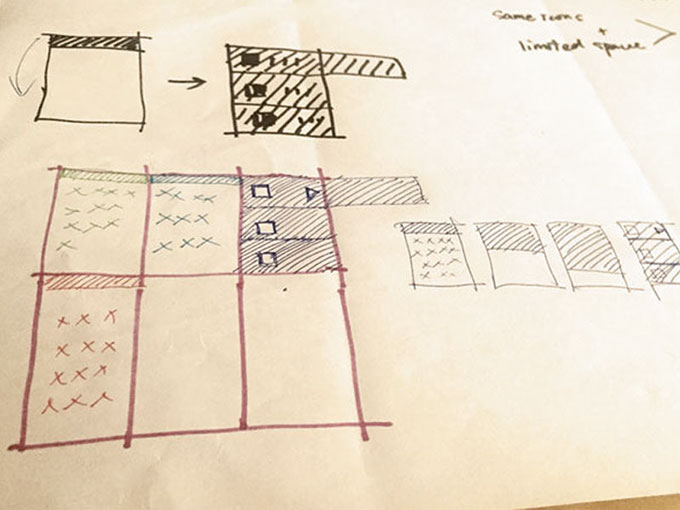 Same icons
+
limited space